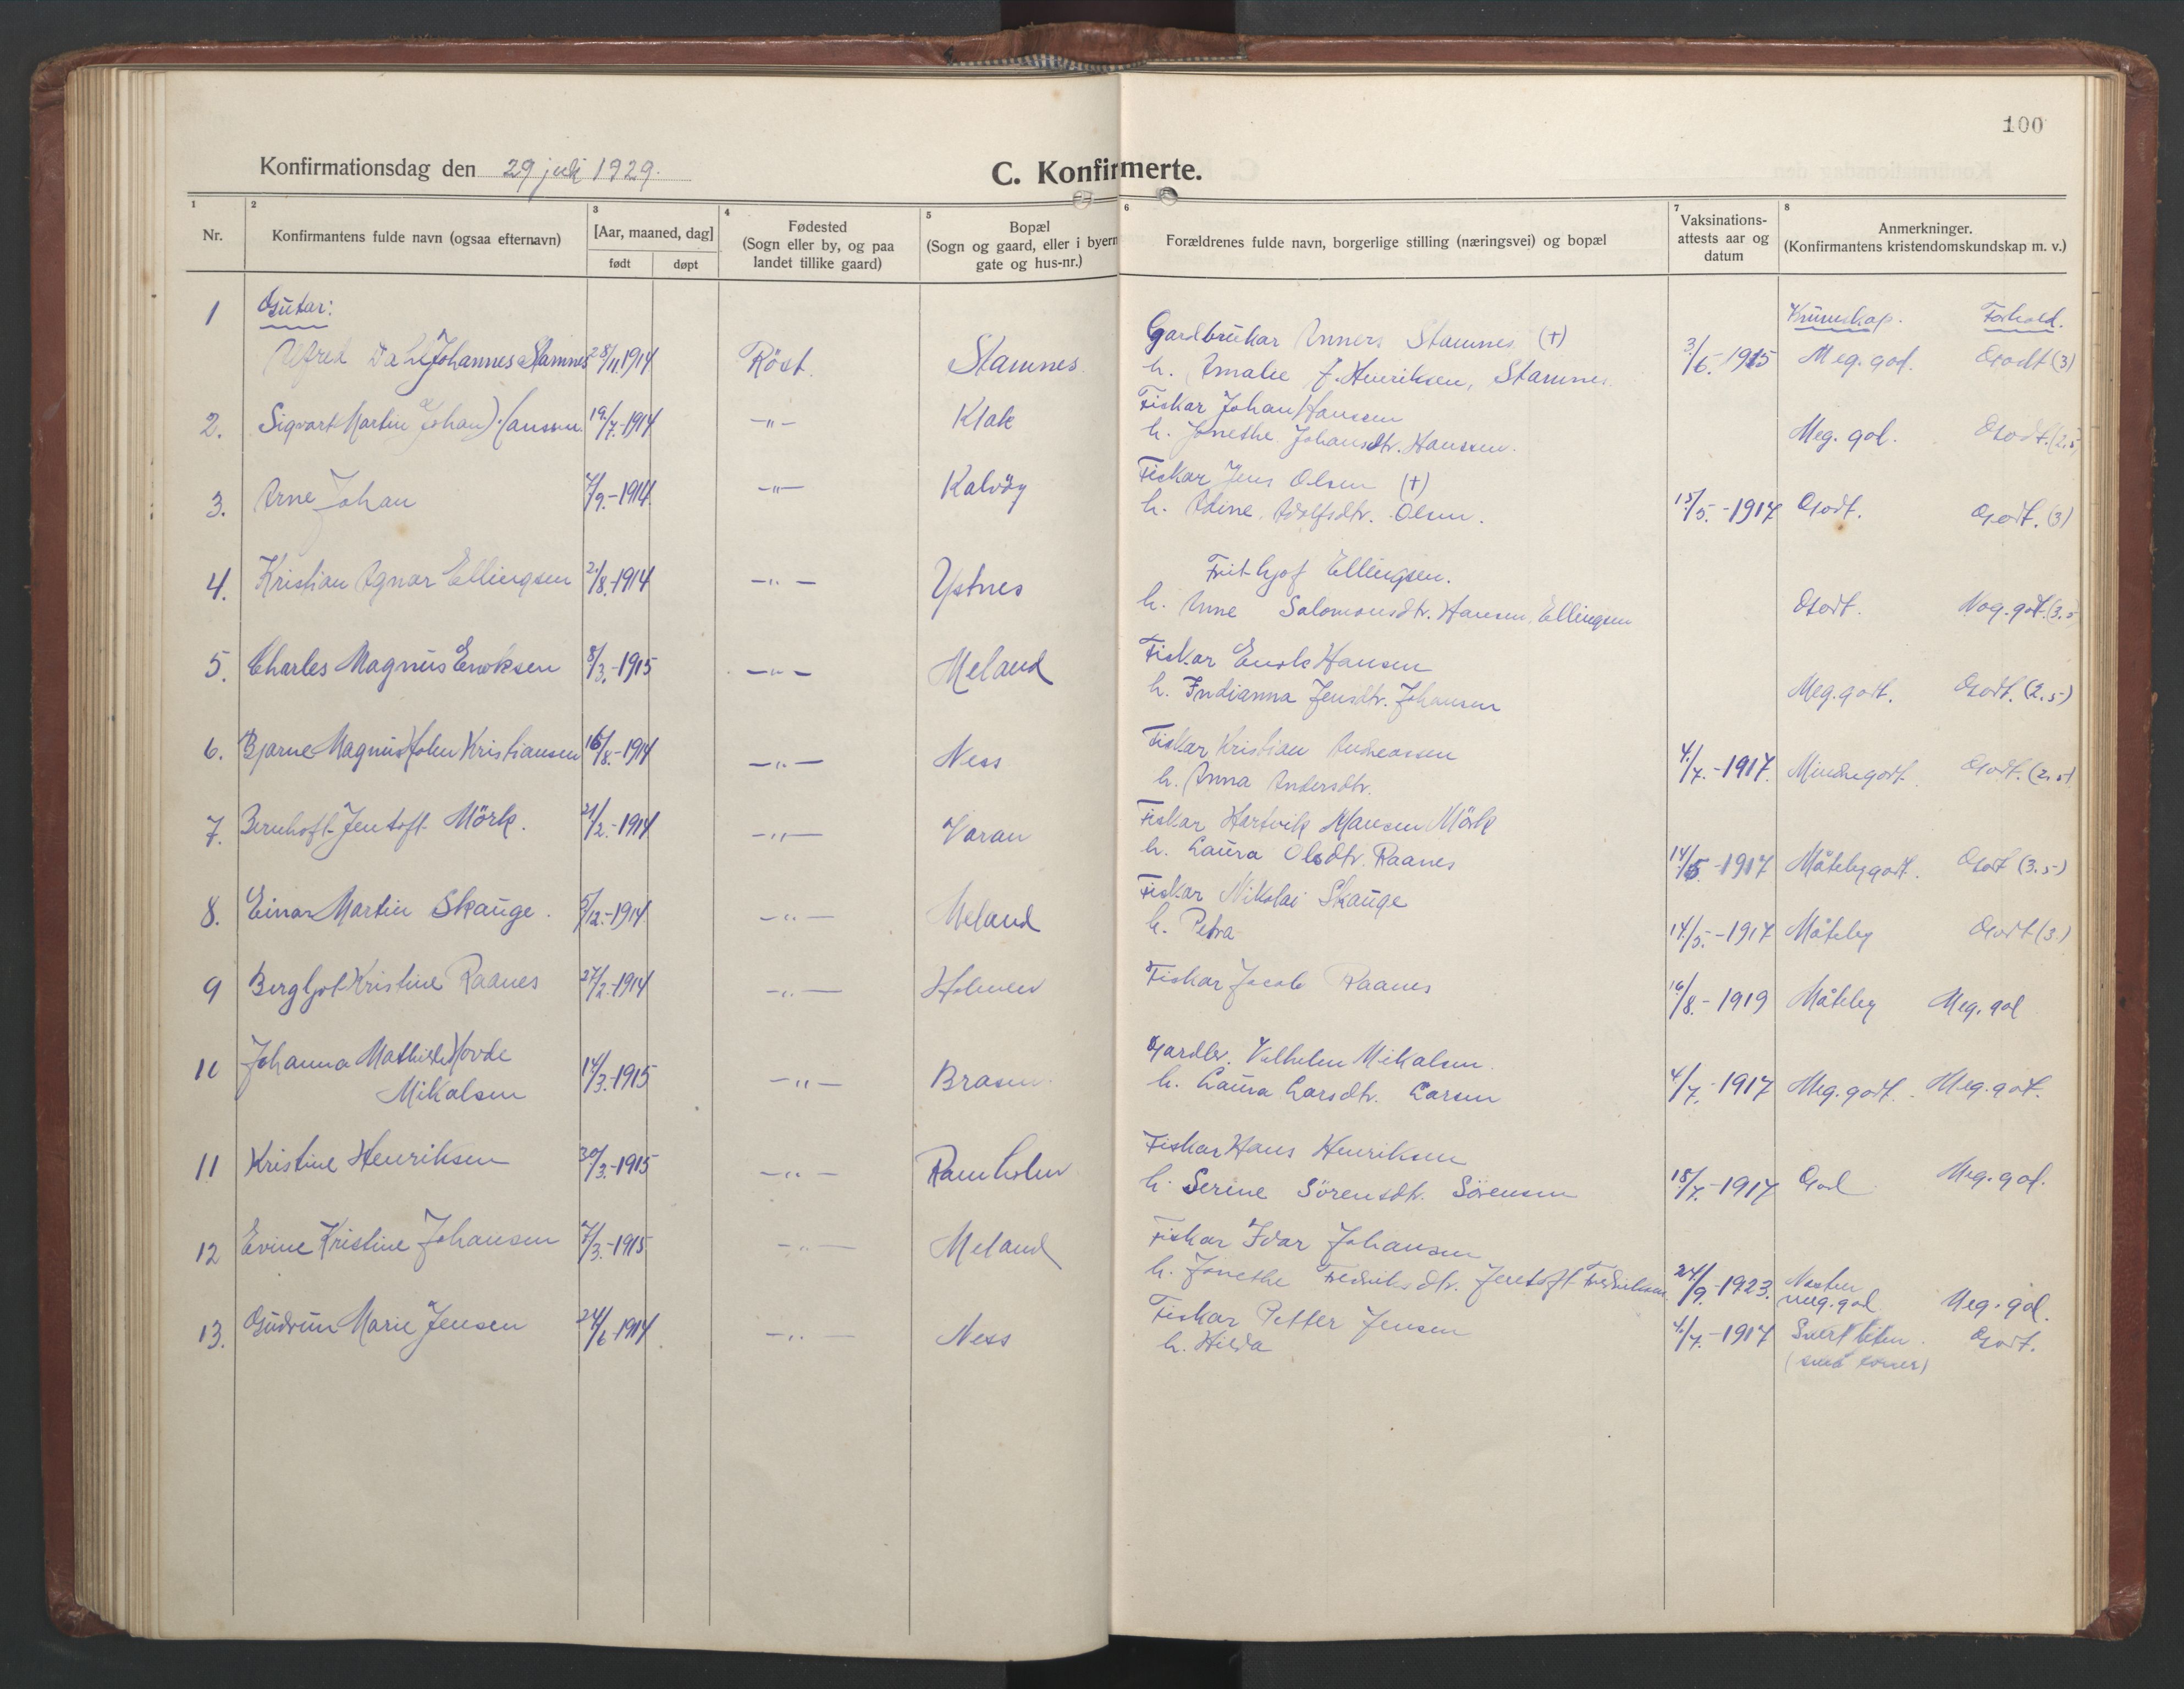 100
Konfirmationsdag den 29 juli 1929.
C. Konfirmerte.
1 2 3 4 5 6 7 8
Nr.
Konfirmantens fulde navn (ogsaa efternavn)
[Aar, maaned, dag]
født døpt
Fødested
(Sogn eller by, og paa
landet tillike gaard)
Bopæl
(Sogn og gaard, eller i byern
gate og hus-nr.)
Forældrenes fulde navn, borgerlige stilling (næringsvei) og bopæl
Vaksinations-
attests aar og
datum
Anmerkninger.
(Konfirmantens kristendomskundskap m. v.)
Gutar:
Kunnskap. Forhold.
1 Alfred Dahl Johannes Stamnes 28/11.1914 Röst. Stamnes Gardbrukar Anners Stamnes (+) 3/6.-1915 Meg. god. Godt (3)
h. Amalie J. Henriksen, Stamnes.
2. Sigvart Martin Johan Hanssen. 19/7.-1914 -"- Klak Fiskar Johan Hanssen Meg. god. Godt. (2.5
h. Jonethe Johansdtr. Hanssen.
3. Arne Johan 7/9.-1914. -"- Kalvöy Fiskar Jens Olsen (+) 15/5.-1917 Godt. Godt. (3)
h. Adine Adolfsdtr. Olsen.
4. Kristian Agnar Ellingsen 2/8.-1914 -"- Ystnes Frithjof Ellingsen. Godt. Nog. godt. (3.5
h. Anne Salomonsdtr. Hansen, Ellingsen
5. Charles Magnus Enoksen 8/3.-1915 -"- Meland Fiskar Enok Hansen Meg. godt. Godt. (2.5)
h. Indianna Jensdtr. Johansen
6. Bjarne Magnus Holm Kristiansen 16/8.-1914 -"- Ness Fiskar Kristian Andreassen 4./7.-1917. Mindregodt. Godt. (2.5)
h. Anna Andersdtr.
7. Bernhoft Jentoft Mörk. 21/2.-1914 -"- Varan Fiskar Hartvik Hansen Mörk 14/5.-1917 Måteleg godt. Godt (3.5)
h. Laura Olsdtr. Raanes
8. Einar Martin Skauge. 5/12.-1914 -"- Meland Fiskar Nikolai Skauge 14/5.-1917 Måteleg Godt (3.)
h. Petra
9 Bergljot Kristine Raanes 27/2.-1914 -"- Holmen Fiskar Jacob Raanes 16/8.-1919 Måteleg Meg. god
10 Johanna Mathilde Hovde 14/3.-1915 -"- Brasen. Gardbr. Vilhelm Mikalsen. 4/7.-1917 Meg. godt. Meg. godt.
Mikalsen h. Laura Larsdtr. Larsen
11 Kristine Henriksen 30/3.-1915 -"- Ramholm Fiskar Hans Henriksen 18/7.-1917 God Meg. god.
h. Serine Sörensdtr. Sörensen
12 Evine Kristine Johansen 7/3.-1915 -"- Meland Fiskar Idar Johansen 24/9.-1923. Nesten meg. god. Meg. god.
h. Jonethe Fredriksdtr. Jentoft Fredriksen
13. Gudrun Marie Jensen 24/6.-1914. -"- Ness Fiskar Petter Jensen 4./7.-1917 Svert liten. Godt.
h. Hilda